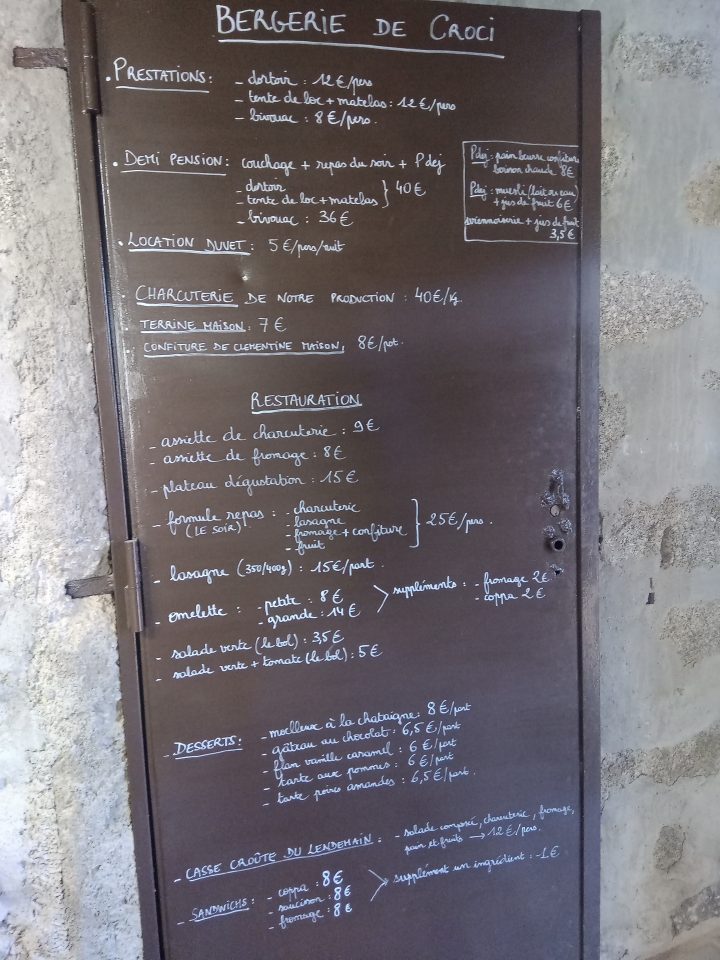 BERGERIE DE CROCI
. PRESTATIONS : - dortoir : 12€/pers
- tente de loc + matelas : 12€/pers
- bivouac : 8€/pers.
. DEMI PENSION : couchage + repas du soir + Pdej
- dortoir
- tente de loc + matelas } 40€
- bivouac : 36€
Pdej : pain beurre confiture
boisson chaude 8€
Pdej : muesli (lait ou eau)
+ jus de fruit 6€
viennoiserie + jus de fruit
3,5€
. LOCATION DUVET : 5€/pers/nuit
. CHARCUTERIE DE NOTRE PRODUCTION : 40€/kg.
TERRINE MAISON : 7€
CONFITURE DE CLEMENTINE MAISON, 8€/pot.
RESTAURATION
- assiette de charcuterie : 9€
- assiette de fromage : 8€
- plateau dégustation : 15€
- formule repas : - charcuterie
(LE SOIR) - lasagne
- fromage + confiture } 25€/pers.
- fruit
- lasagne (350/400g) : 15€/part.
- omelette : - petite : 8€ > suppléments : - fromage 2€
- grande : 14€ - coppa 2€
- salade verte (le bol) : 3,5€
- salade verte + tomate (le bol) : 5€
- DESSERTS : - moelleux à la chataigne : 8€/part
- gâteau au chocolat : 6,5€/part
- flan vanille caramel : 6€/part
- tarte aux pommes : 6€/part
- tarte poires amandes : 6,5€/part.
- CASSE CROÛTE DU LENDEMAIN : - salade composée, charcuterie, fromage,
pain et fruits → 12€/pers.
- SANDWICHS : - coppa : 8€
- saucisson : 8€ > supplément un ingrédient : -1€
- fromage : 8€